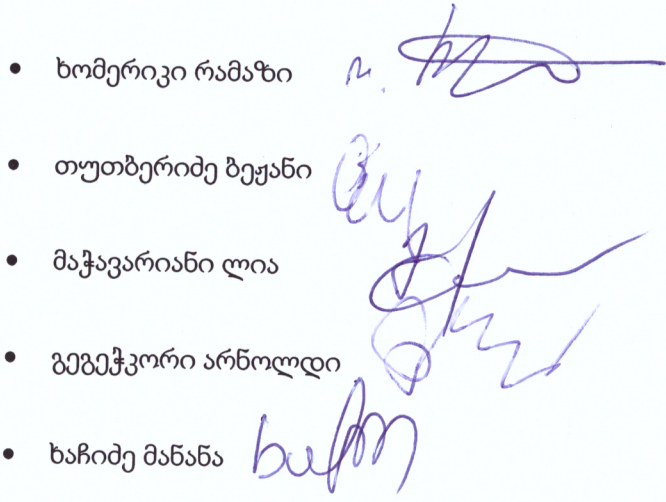 • ხომერიკი რამაზი
• თუთბერიძე ბეჟანი
• მაჭავარიანი ლია
• გეგეჭკორი არნოლდი
• ხაჩიძე მანანა